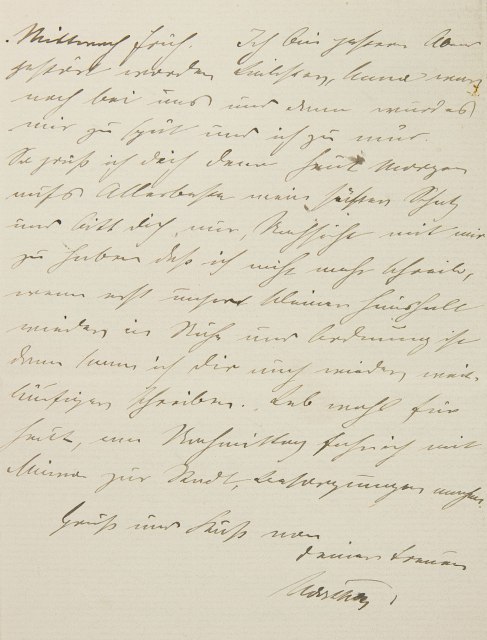 Mittwoch früh. Ich bin gestern Abend
gestört worden Liebster, Anna war
noch bei uns und dann wurde es
mir zu spät und ich zu müd.
So grüß ich dich denn heut Morgen
aufs Allerbeste mein süßer Schatz
und bitt dich nur, Nachsicht mit mir
zu haben daß ich nicht mehr schreib,
wenn erst unser kleiner Haushalt
wieder in Ruhe und Ordnung ist
dann kann ich dir auch wieder weit-
läufiger schreiben. Leb wohl für
heut, am Nachmittag fahr ich mit
Minna zur Stadt, Besorgungen machen.
Gruß und Kuß von
deiner treuen